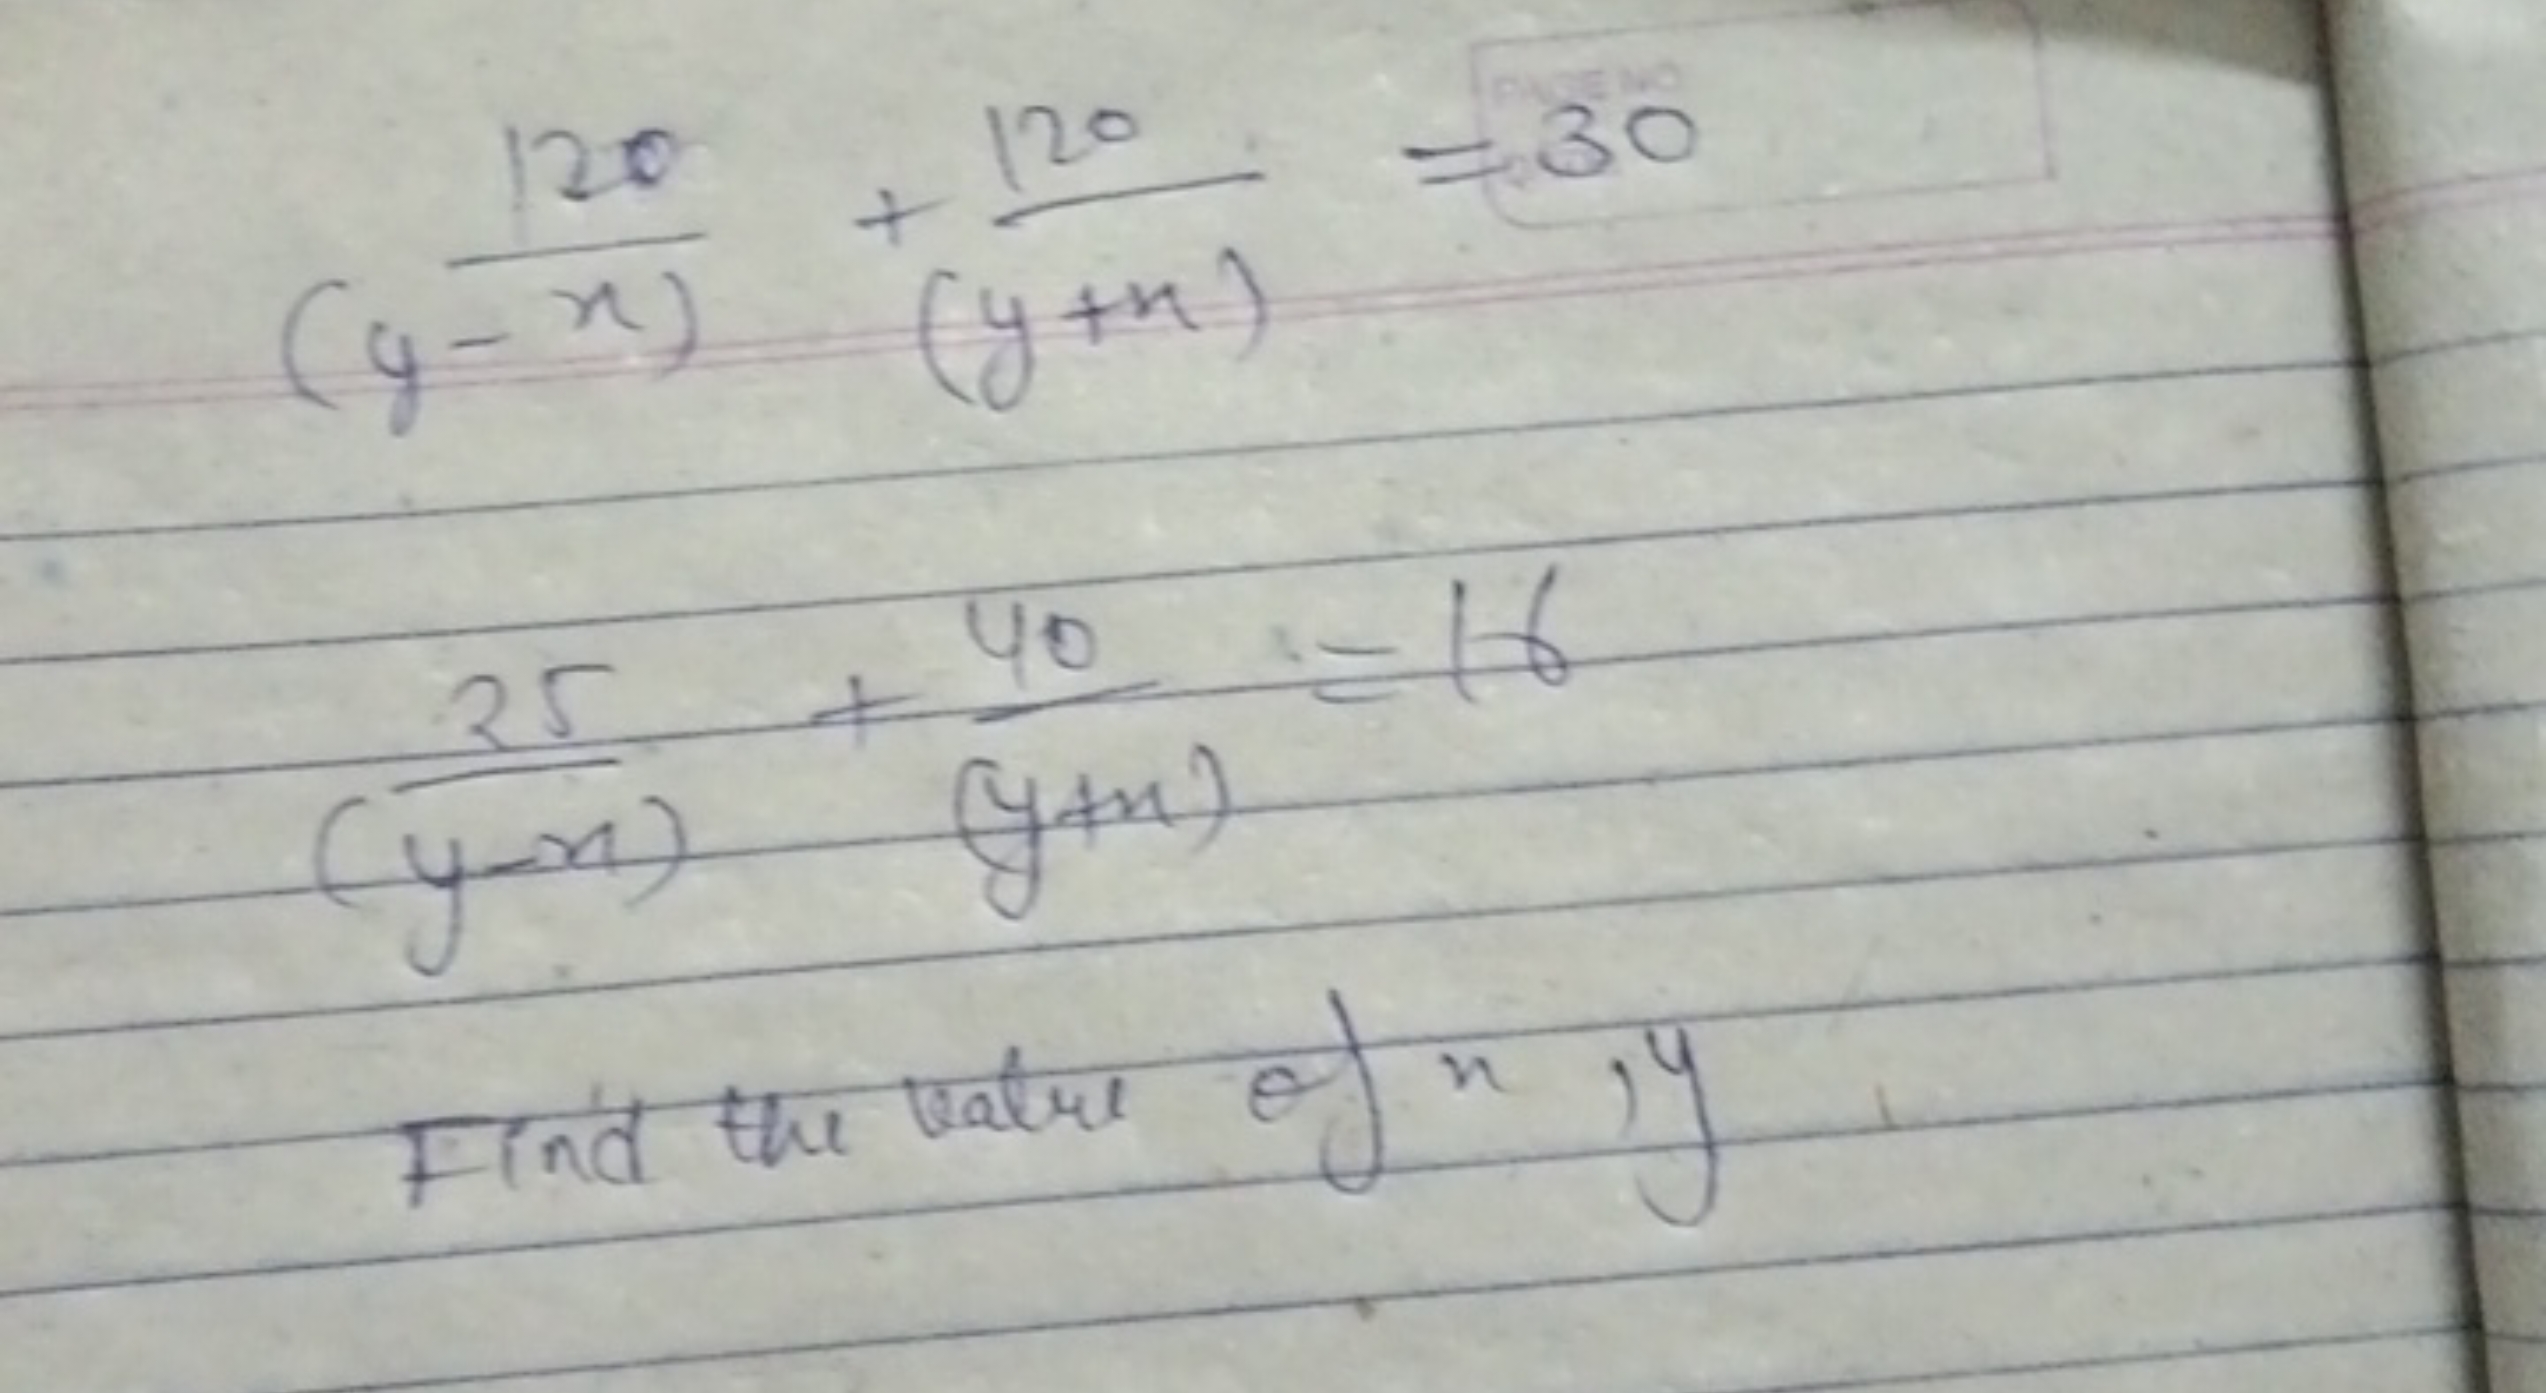 PAGE NO
120/(y-x) + 120/(y+x) = 30
25/(y-x) + 40/(y+x) = 16
Find the value of x, y